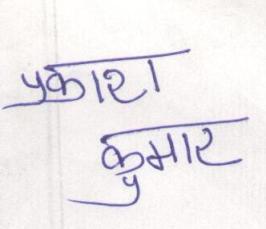 प्रकाश
कुमार